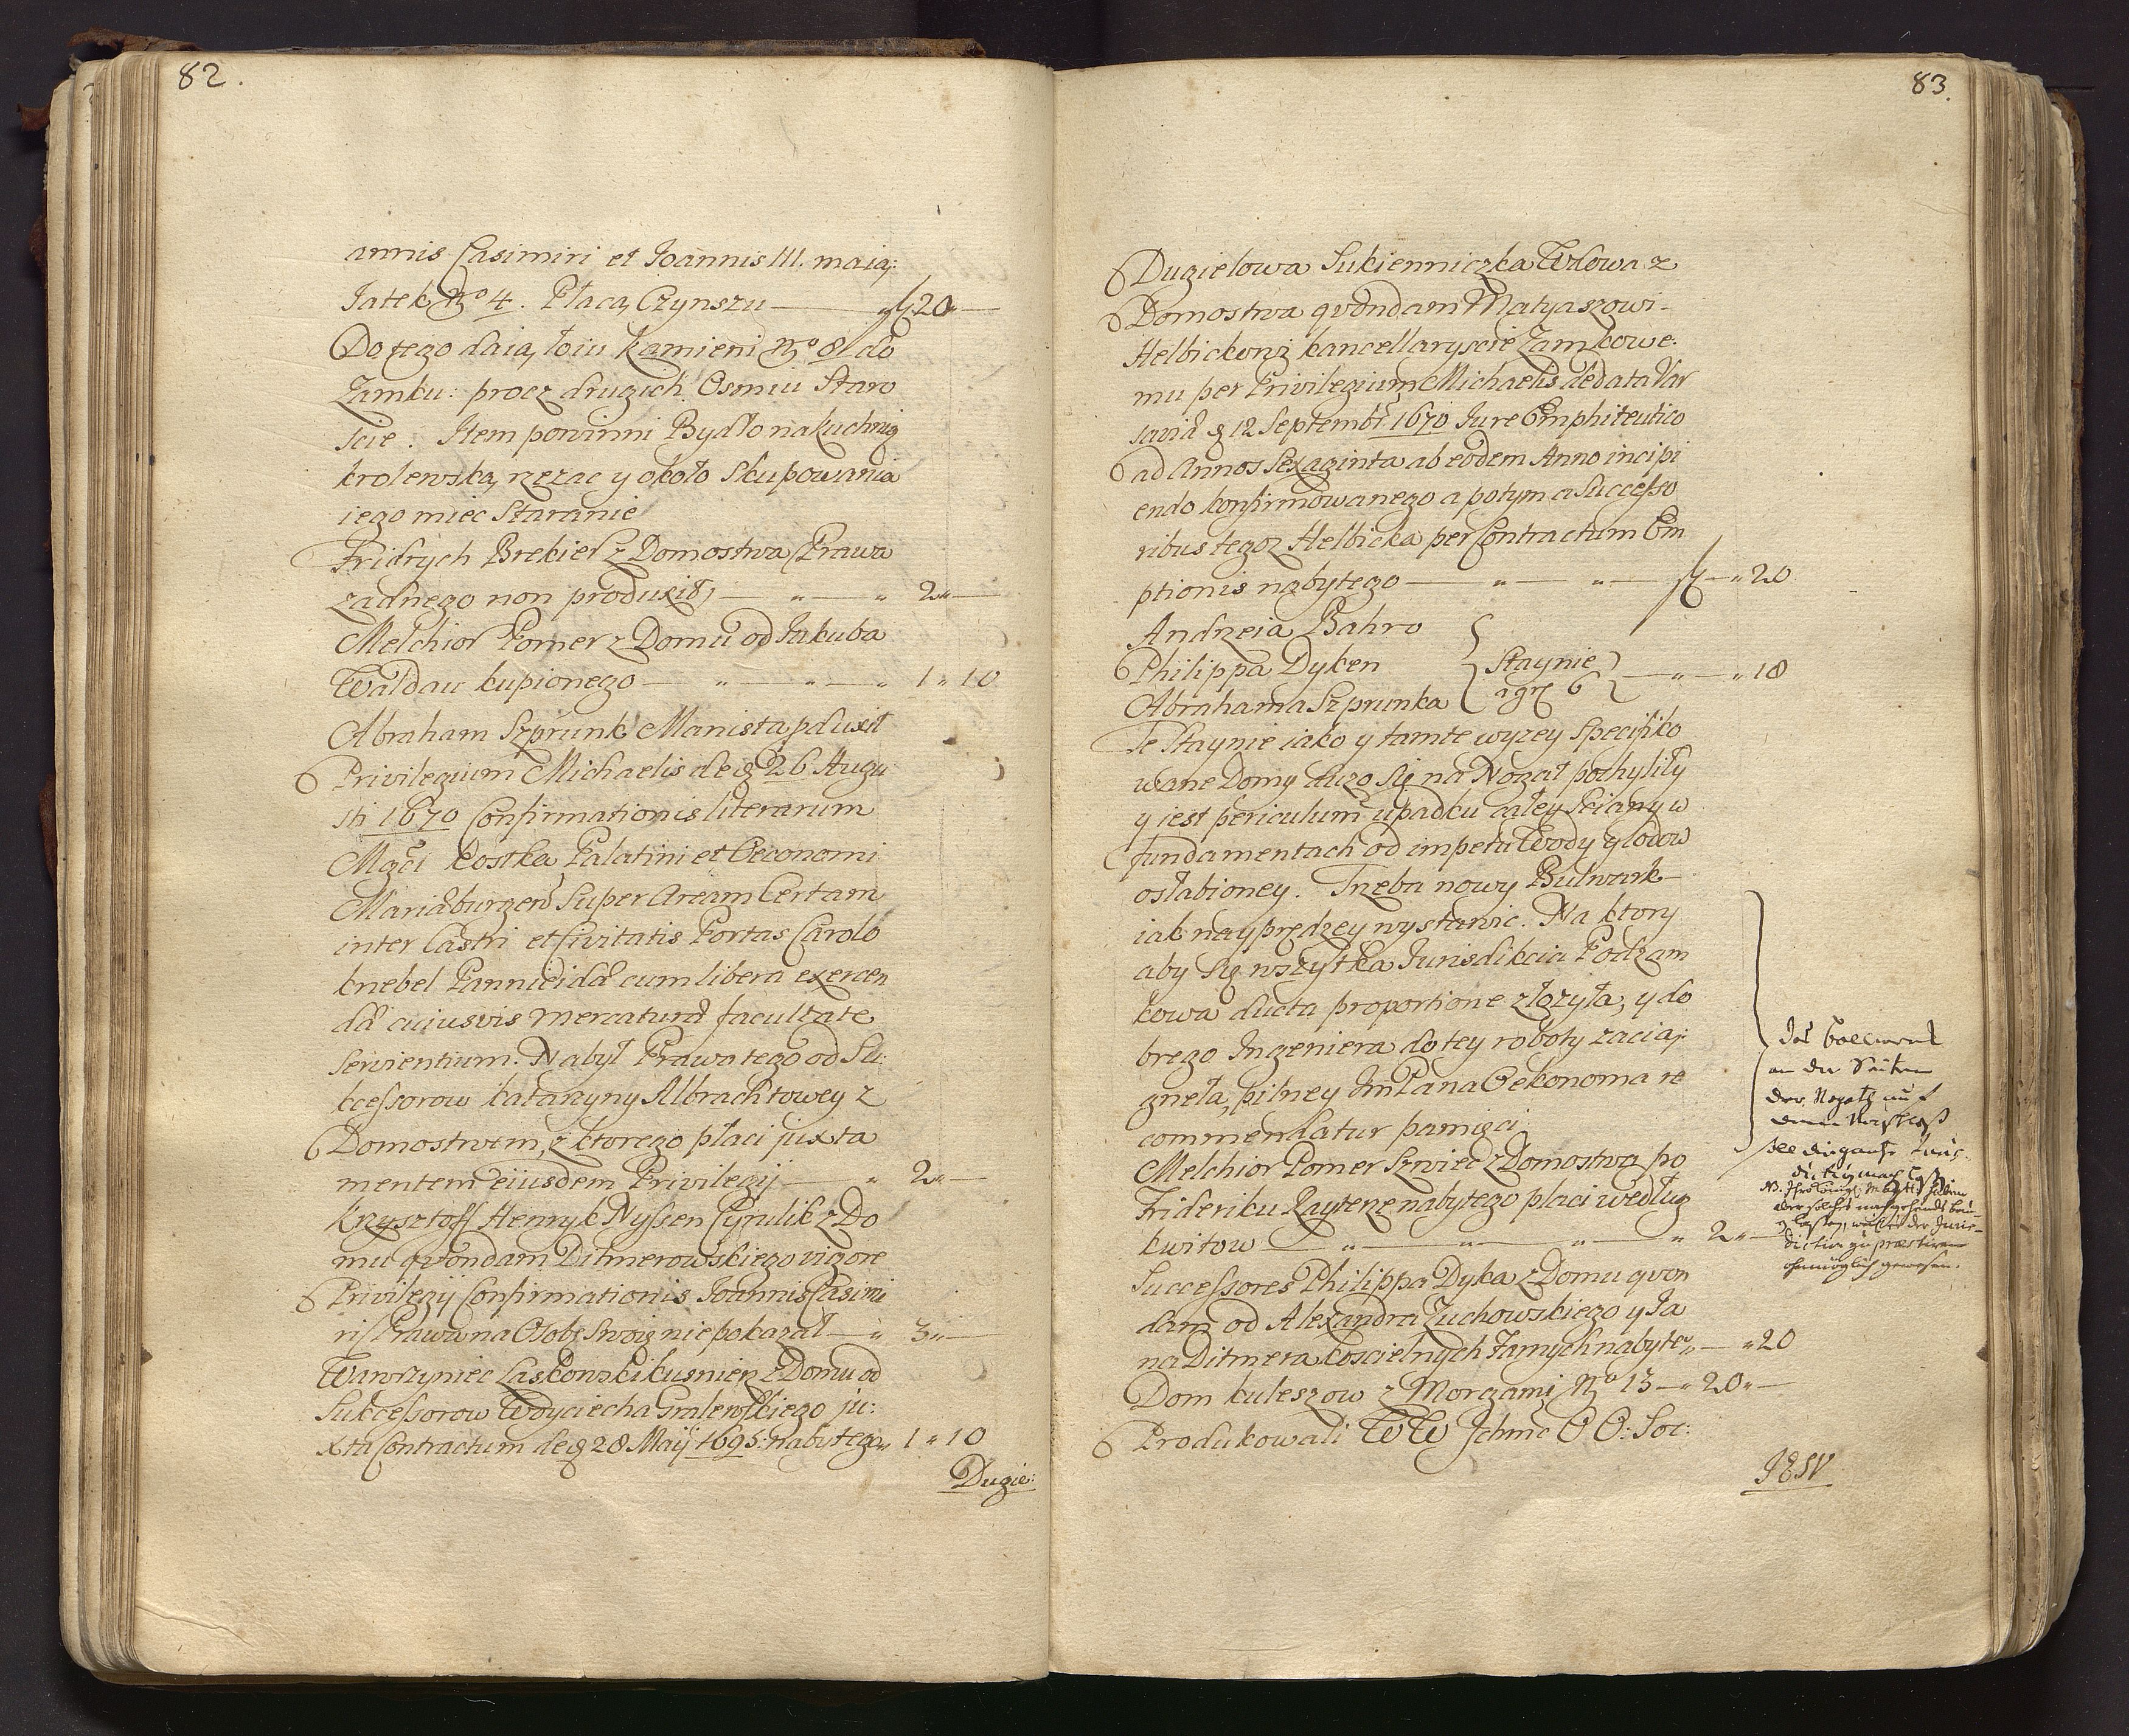 82.
annis Casimiri et Joannis III. maią:
Jatek No 4. Płacą Czynszu — fl 20 „ —
Do tego daią łoiu Kamieni No 8 do
Zamku: procz drugich Osmiu Staro
scie. Item powinni Bydło na kuchnię
krolewską rzezac y około skupowania
iego miec Staranie
Fridrych Brekiel z Domostwa (Prawa
zadnego non produxit) — „ — „ 2 „ —
Melchior Pomer z Domu od Jakuba
Waldau kupionego — „ — „ — „ 1 „ 10
Abraham Szprunk Manista pduxit
Privilegium Michaelis de d 26 Augu
sti 1670 Confirmationis literarum
Mgci Kostka Palatini et Oeconomi
Mariaeburgen Super Aream Certam
inter Castri et Civitatis Portas Carolo
Knebel Pannicidae cum libera exercen
dae cuiusvis mercaturae facultate
Servientium. Nabył Prawa tego od Su:
kcessorow Katarzyny Albrachtowey z
Domostwem, z ktorego płaci juxta
mentem eiusdem Privilegij — „ 2 „ —
Krzysztoff Henryk Nyssen Cyrulik z Do
mu qvondam Ditmerowskiego vigore
Privilegij Confirmationis Joannis Casimi
ri Prawa na Osobę Swoię nie pokazał — „ 3 „ —
Wawrzyniec Laskowski kusnierz z Domu od
Sukcessorow Woyciecha Gralewskiego ju:
xta Contractum de d 28 Maij 1695. nabytego „ 1 „ 10
Dugie:
83.
Dugielowa Sukienniczka Wdowa z
Domostwa qvondam Matyaszowi
Helbickowi kancellaryscie Zamkowe:
mu per Privilegium Michaelis de data Var
savia d 12 Septembr 1670 Jure Emphiteutico
ad Annos Sexaginta ab eodem Anno incipi
endo konfirmowanego a potym a Successo
ribus tegoz Helbicka per Contractum Em
ptionis nabytego — „ — „ — fl — „ 20
Andrzeia Bahro
Philippa Dyken } Staynie — „ — „ 18
Abrahama Szprunka } a gr 6
Te Staynie iako y tamte wyzey specifiko
wane Domy duzo się na Nogat pochyliły
y iest periculum upadku całey Sciany w
fundamentach od impetu Wody y lodow
osłabioney. Trzeba nowy Bulwark
iak nayprędzey wystawic. Na ktory
aby się wszytka Jurisdikcia Podzam
kowa ducta proportione złozyła, y do
brego Ingeniera do tey roboty zacią:
gneła, pilney Jm Pana Oekonoma re
commendatur pamięci
Das Bollwerck
an der Seiten
der Nogath auf
dem Vorschloß
soll die gantze Juris:
diction machen laßen
NB. Ihro Königl Maytt haben
aber solches nachgehends bau:
en laßen, weil es der Juris:
diction zu praestiren
ohnmöglich gewesen.
Melchior Pomer Szwiec z Domostwa po
Frideriku Raytenze nabytego płaci według
kwitow — „ — „ — „ — „ 2 „ —
Successores Philippa Dyka z Domu qvon
dam od Alexandra Zuchowskiego y Ja
na Ditmera koscielnych Tamych nabyte „ — „ 20
Dom kuleszow z Morgami No 13 — „ 20 „ —
Produkowali WW Jchmc OO: Soc:
JESV